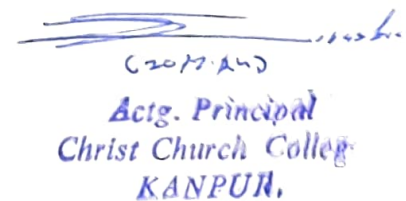 Actg. Principal
Christ Church Colleg
KANPUR.